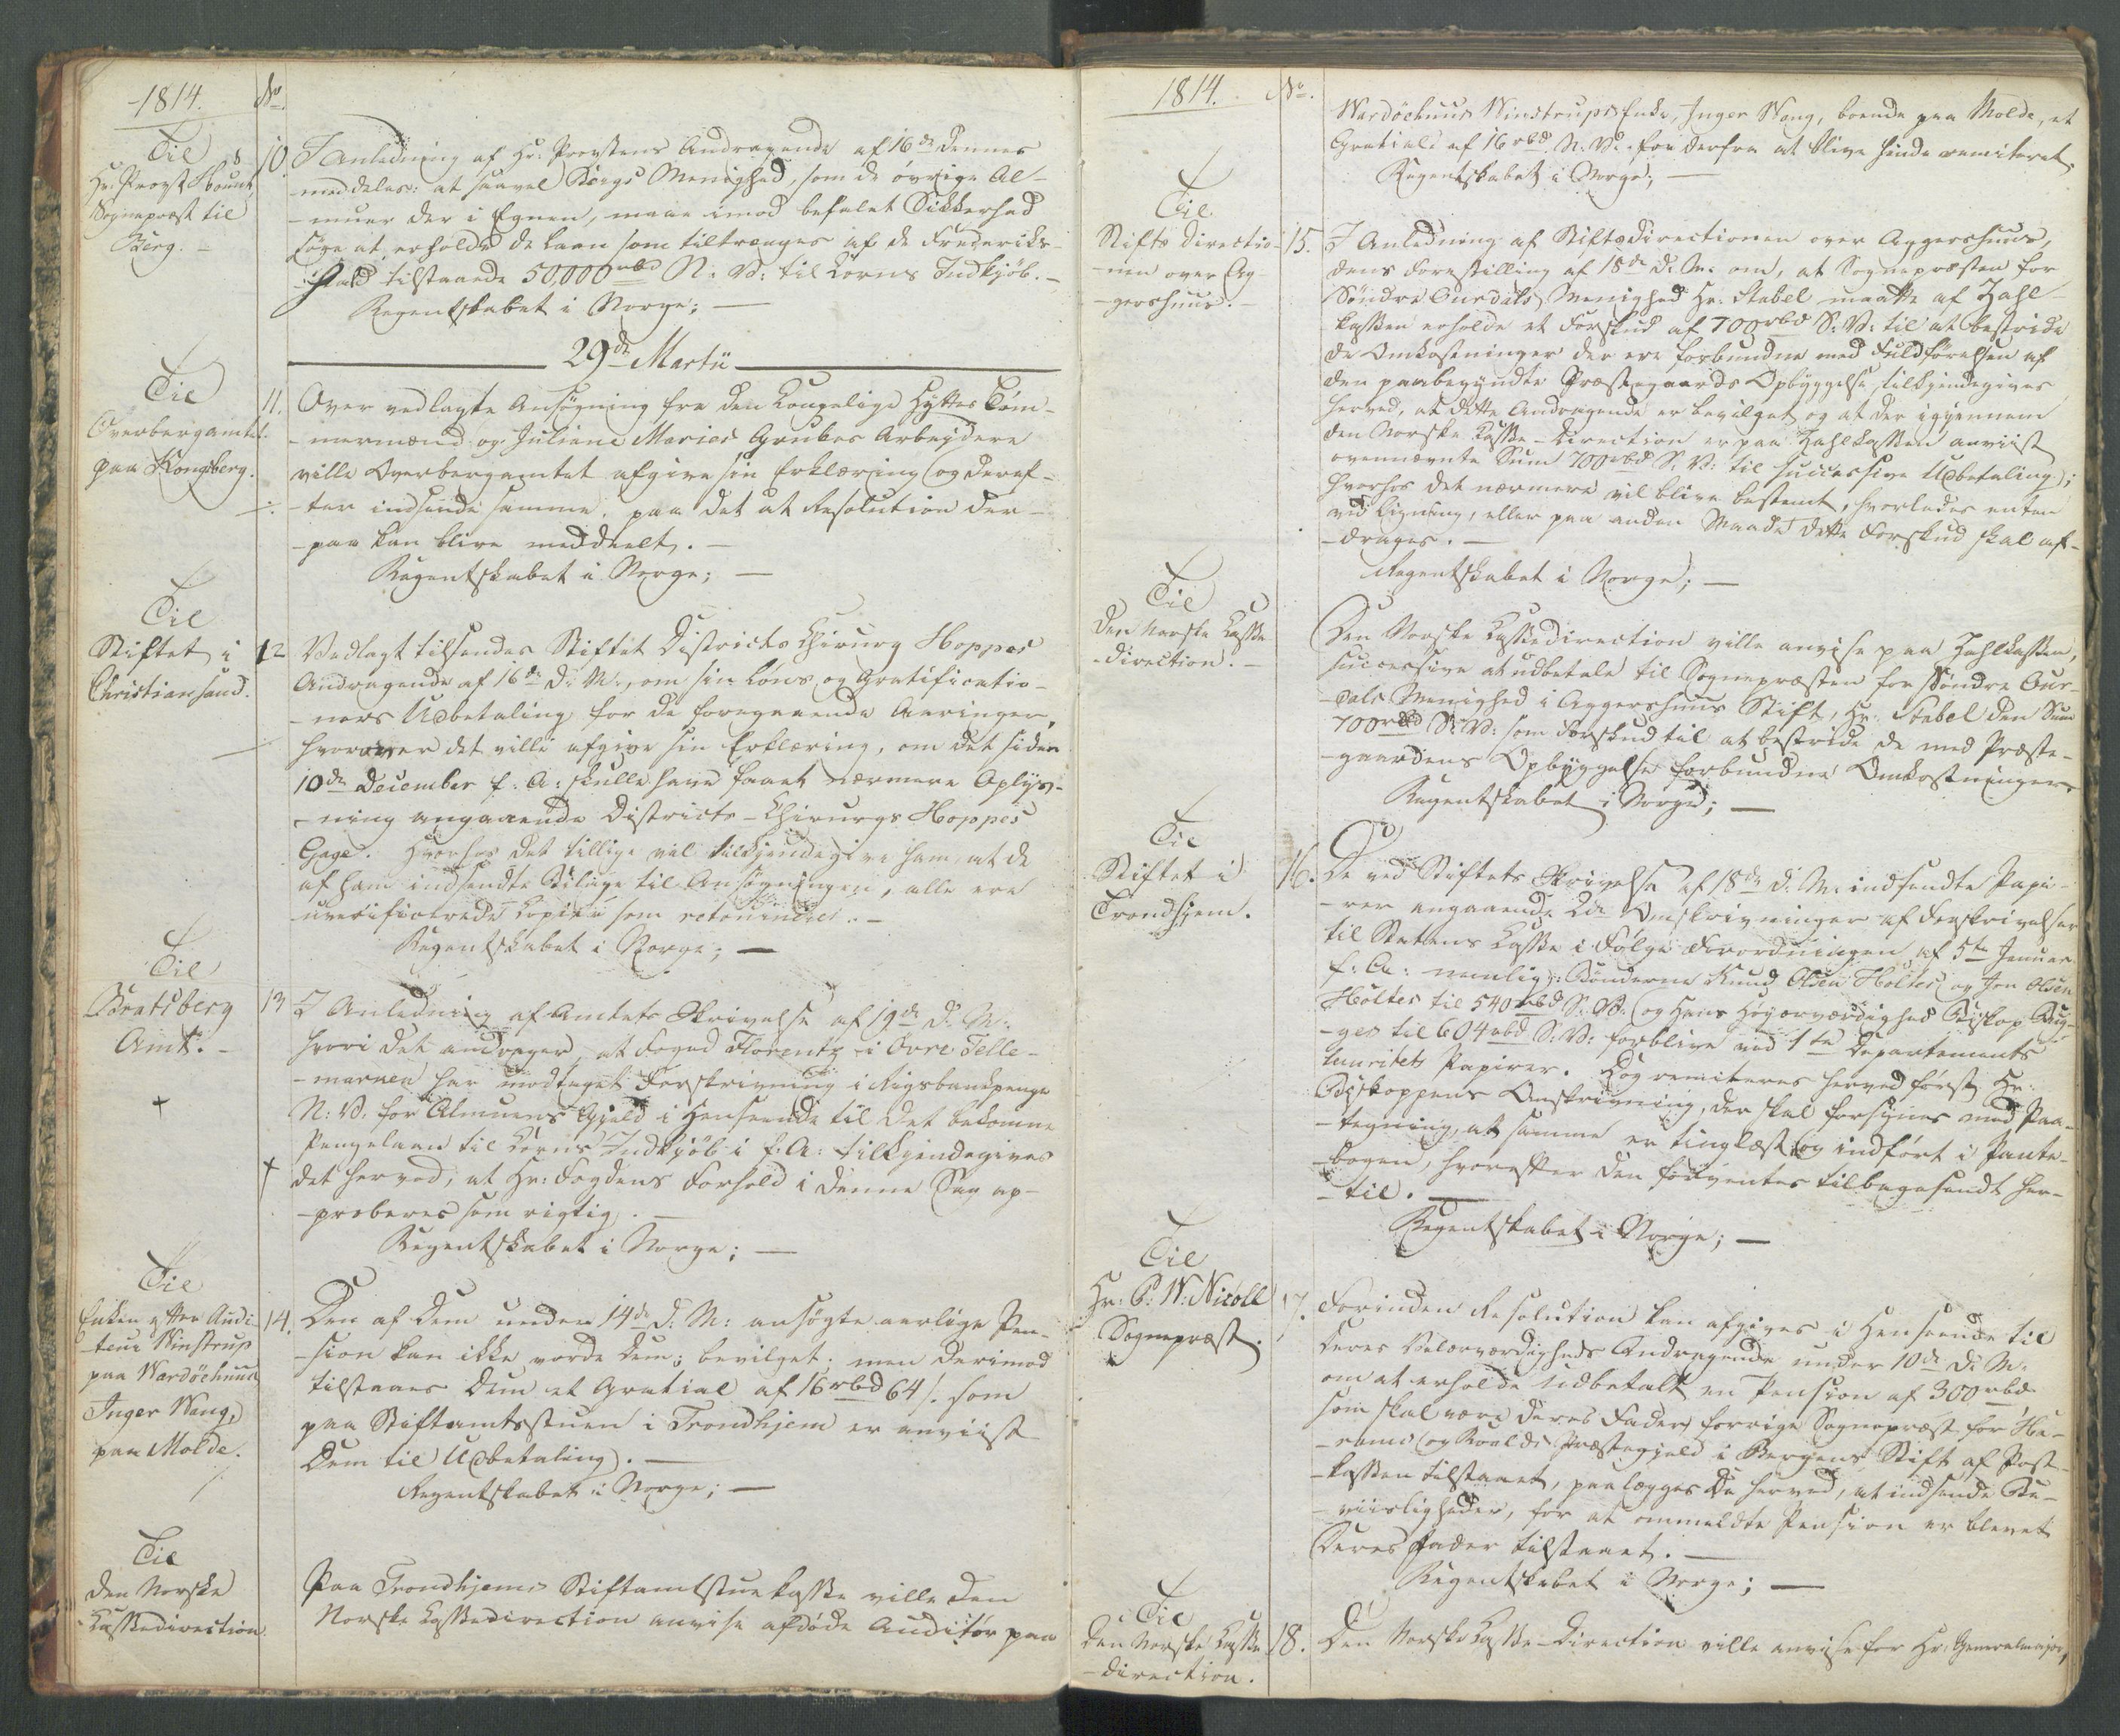 1814.
No.
Til
Hr. Provst
Sognepræst til
Berg. -
10. I Anledning af Hr. Provstens Andragende af 16de dennes
meddeles: at saavel Bergs Menighed, som de øvrige Al-
-muer der i Egnen, maae imod befalet Sikkerhed
søge at erholde de Laan som tiltrænges af de Frederiks-
-hald tilstaaede 50,000 rbd N: V: til Korns Indkjøb. -
Regentskabet i Norge; -
29de Martii
Til
Overbergamtet
paa Kongsberg.
11. Over vedlagte Ansøgning fra den Kongelige Hyttes Tøm-
-mermænd og Juliane Maries Grubes Arbeydere
ville Overbergamtet afgive sin Erklæring og deref-
-ter indsende samme, paa det at Resolution der-
-paa kan blive meddeelt. -
Regentskabet i Norge; -
Til
Stiftet i
Christiansand.
12 Vedlagt tilsendes Stiftet Districts Chirurg Hoppes
Andragende af 16de d: M:, om sin Løns og Gratificatio-
-ners Udbetaling for de foregaaende Aaringer,
hvorover det ville afgive sin Erklæring, om det siden
10de December f: A: skulle have faaet nærmere Oplys-
-ning angaaende Districts-Chirurgs Hoppes
Gage. Hvorhos det tillige vil tilkjendegive ham, at de
af ham indsendte Bilage til Ansøgningen, alle ere
uverificerede Copier som
Regentskabet i Norge; -
Til
Bratsberg
Amt. -
13 I Anledning af Amtets Skrivelse af 19de d: M:
hvori det andrager, at Foged Florentz i Øvre Telle-
-marken har modtaget Forskrivning i Rigsbankpenge
N: V: for Almuens Gjeld i Henseende til det bekomne
Pengelaan til Korns Indkjøb i f: A: tilkjendegives
det herved, at Hr: Fogdens Forhold i denne Sag ap-
-proberes som rigtig. -
Regentskabet i Norge; -
Til
Enken efter Audi-
-teur Winstrup
paa Wardöehuus
Inger Wang,
paa Molde.
14. Den af Dem under 14de d: M: ansøgte aarlige Pen-
-sion kan ikke vorde Dem bevilget; men derimod
tilstaaes Dem et Gratial af 16 rbd 64 s. som
paa Stiftamtsstuen i Trondhjem er anviist
Dem til Udbetaling. -
Regentskabet i Norge; -
Til
den Norske
Cassedirection
Paa Trondhjems Stiftamtstuekasse ville den
Norske Cassedirection anvise afdøde Auditør paa
1814.
No.
Wardöehuus Winstrups Enke, Inger Wang, boende paa Molde, et
Gratiale af 16 rbd N. V. for derfra at blive hende remiteret.
Regentskabet i Norge; -
Til
Stifts Directio-
-nen over Ag-
-gershuus. -
15. I Anledning af Stiftsdirectionen over Aggershuus,
dens Forestilling af 18de d: M: om, at Sognepræsten for
Søndre Ourdals Menighed Hr. Stabel maatte af Zahl-
kassen erholde et Forskud af 700 rbd S: V: til at bestride
de Omkostninger der ere forbundne med Fuldførelsen af
den paabegyndte Præstegaards Opbyggelse, tilkjendegives
herved, at dette Andragende er bevilget og at der igjennem
den Norske Casse-Direction er paa Zahlkassen anviist
ovennævnte Sum 700 rbd S: V: til successive Udbetaling;
hvorhos det nærmere vil blive bestemt, hvorledes enten
ved Ligning, eller paa anden Maade dette Forskud skal af-
-drages. -
Regentskabet i Norge; -
Til
Den Norske Casse
-direction. -
Den Norske Cassedirection ville anvise paa Zahlkassen,
successive at udbetale til Sognepræsten for Søndre Our-
-dals Menighed i Aggershuus Stift, Hr. Stabel den Sum
700 rbd S: V: som Forskud til at bestride de med Præste-
-gaardens Opbyggelse forbundne Omkostninger.
Regentskabet i Norge; -
Til
Stiftet i
Trondhjem.
16. De ved Stiftets Skrivelse af 18de d: M: indsendte Papi-
-rer angaaende 2de Omskrivninger af Forskrivelser
til Statens Casse i Følge Forordningen af 5te Januar
f: A: nemlig: Bønderne Knud Olsen Holtes og Jon Olsen
Holtes til 540 rbd S: V: og Hans Høyærværdighed Biskop Bug-
-ges til 604 rbd S: V: forblive ved 1te Departements
Papirer. Dog remiteres herved først Hr:
Biskoppens Omskrivning, der skal forsynes med Paa-
-tegning, at samme er tinglæst og indført i Pante-
-bogen, hvorefter den forventes tilbagesendt her-
-til. -
Regentskabet i Norge; -
Til
Hr: P: W: Nicoll
Sognepræst.
17. Forinden Resolution kan afgives i Henseende til
Deres Velærværdigheds Andragende under 10de d: M:
om at erholde udbetalt en Pension af 300 rbd
som skal være Deres Fader, forrige Sognepræst for Ha-
-rams og Roalds Præstegjeld i Bergens Stift af Post-
-kassen tilstaaet, paalægges De herved, at indsende Be-
-viisligheder, for at ommeldte Pension er blevet
Deres Fader tilstaaet. -
Regentskabet i Norge; -
Til
den Norske Casse
-direction.
18. Den Norske Casse-Direction ville anvise for Hr. Generalmajor,